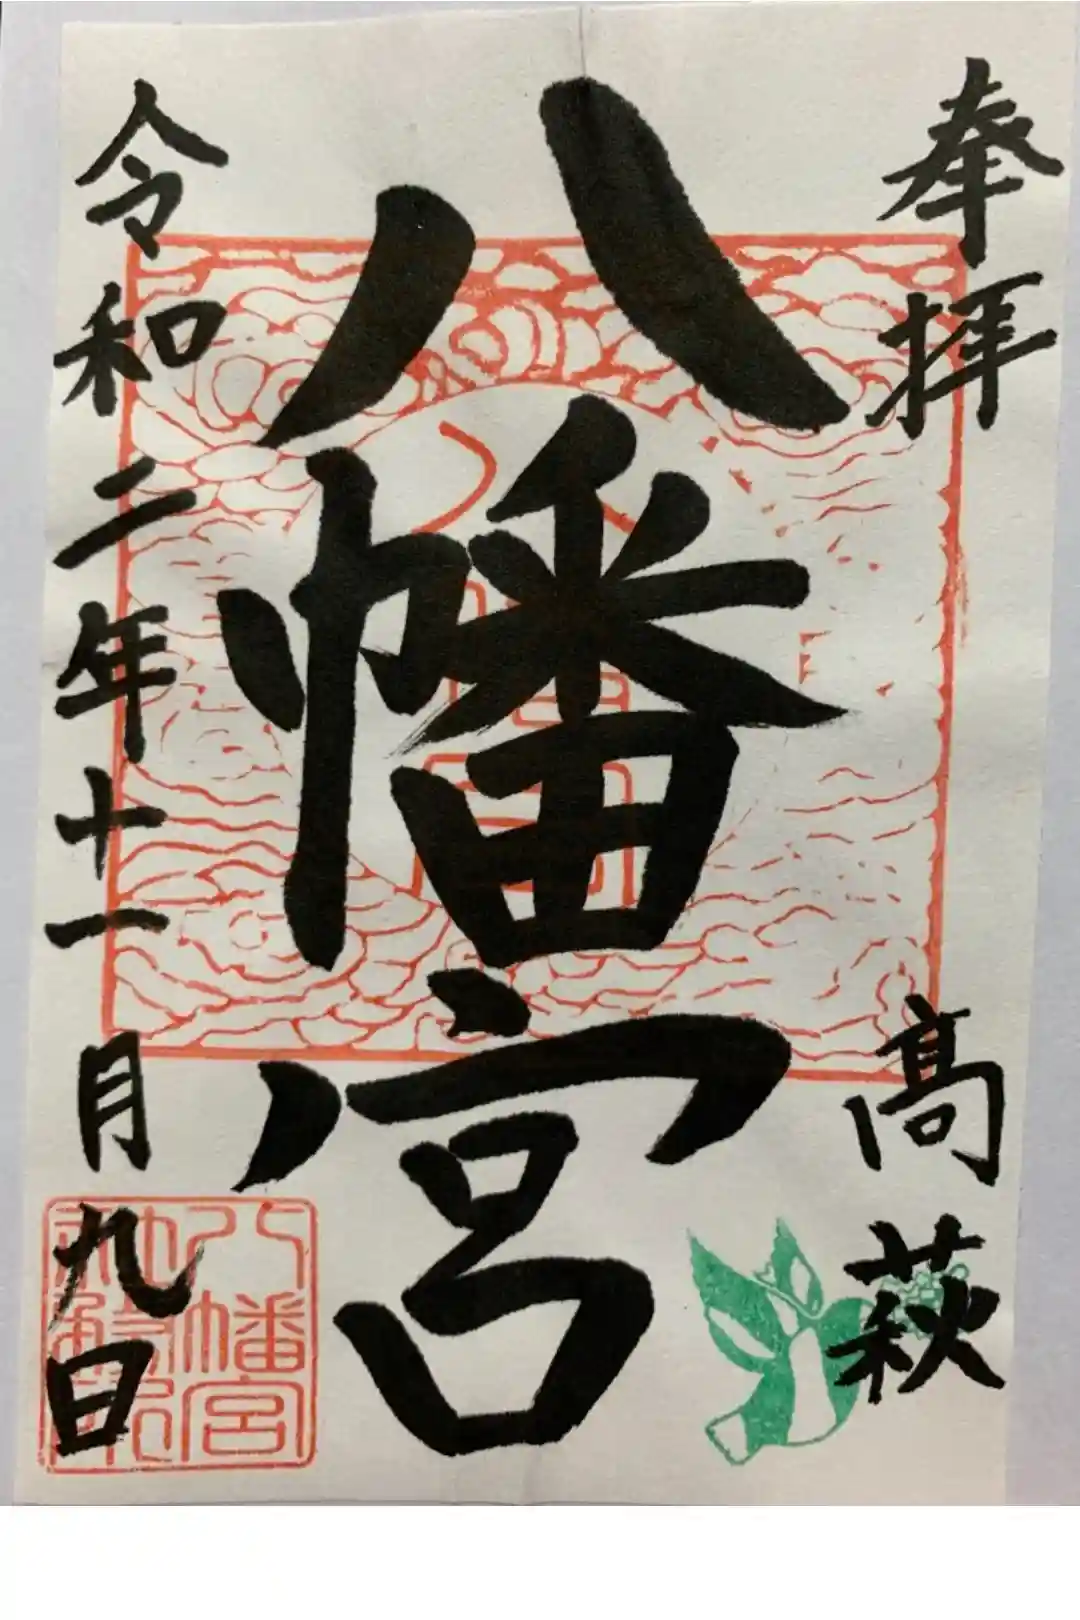 奉拝
髙萩
八幡宮
令和二年十一月九日
八幡宮